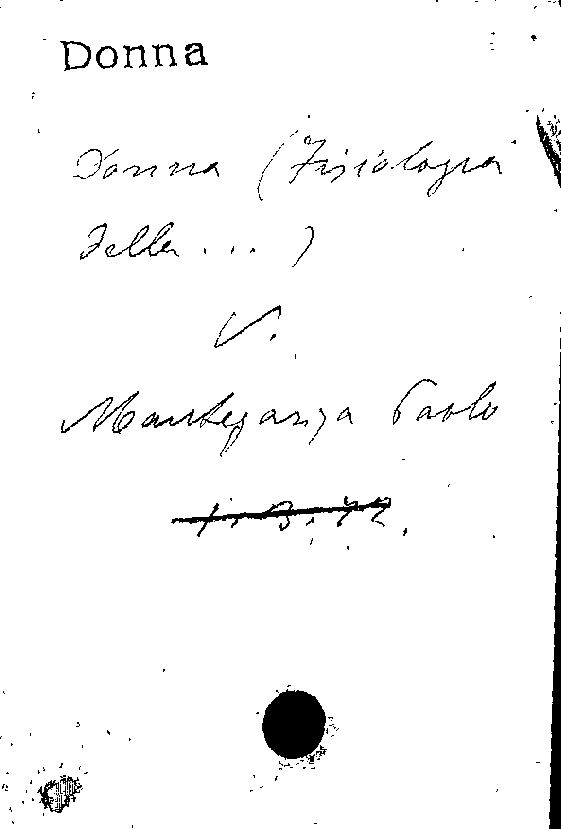 Donna
Donna (Fisiologia
della ... )
V.
Mantegazza Paolo